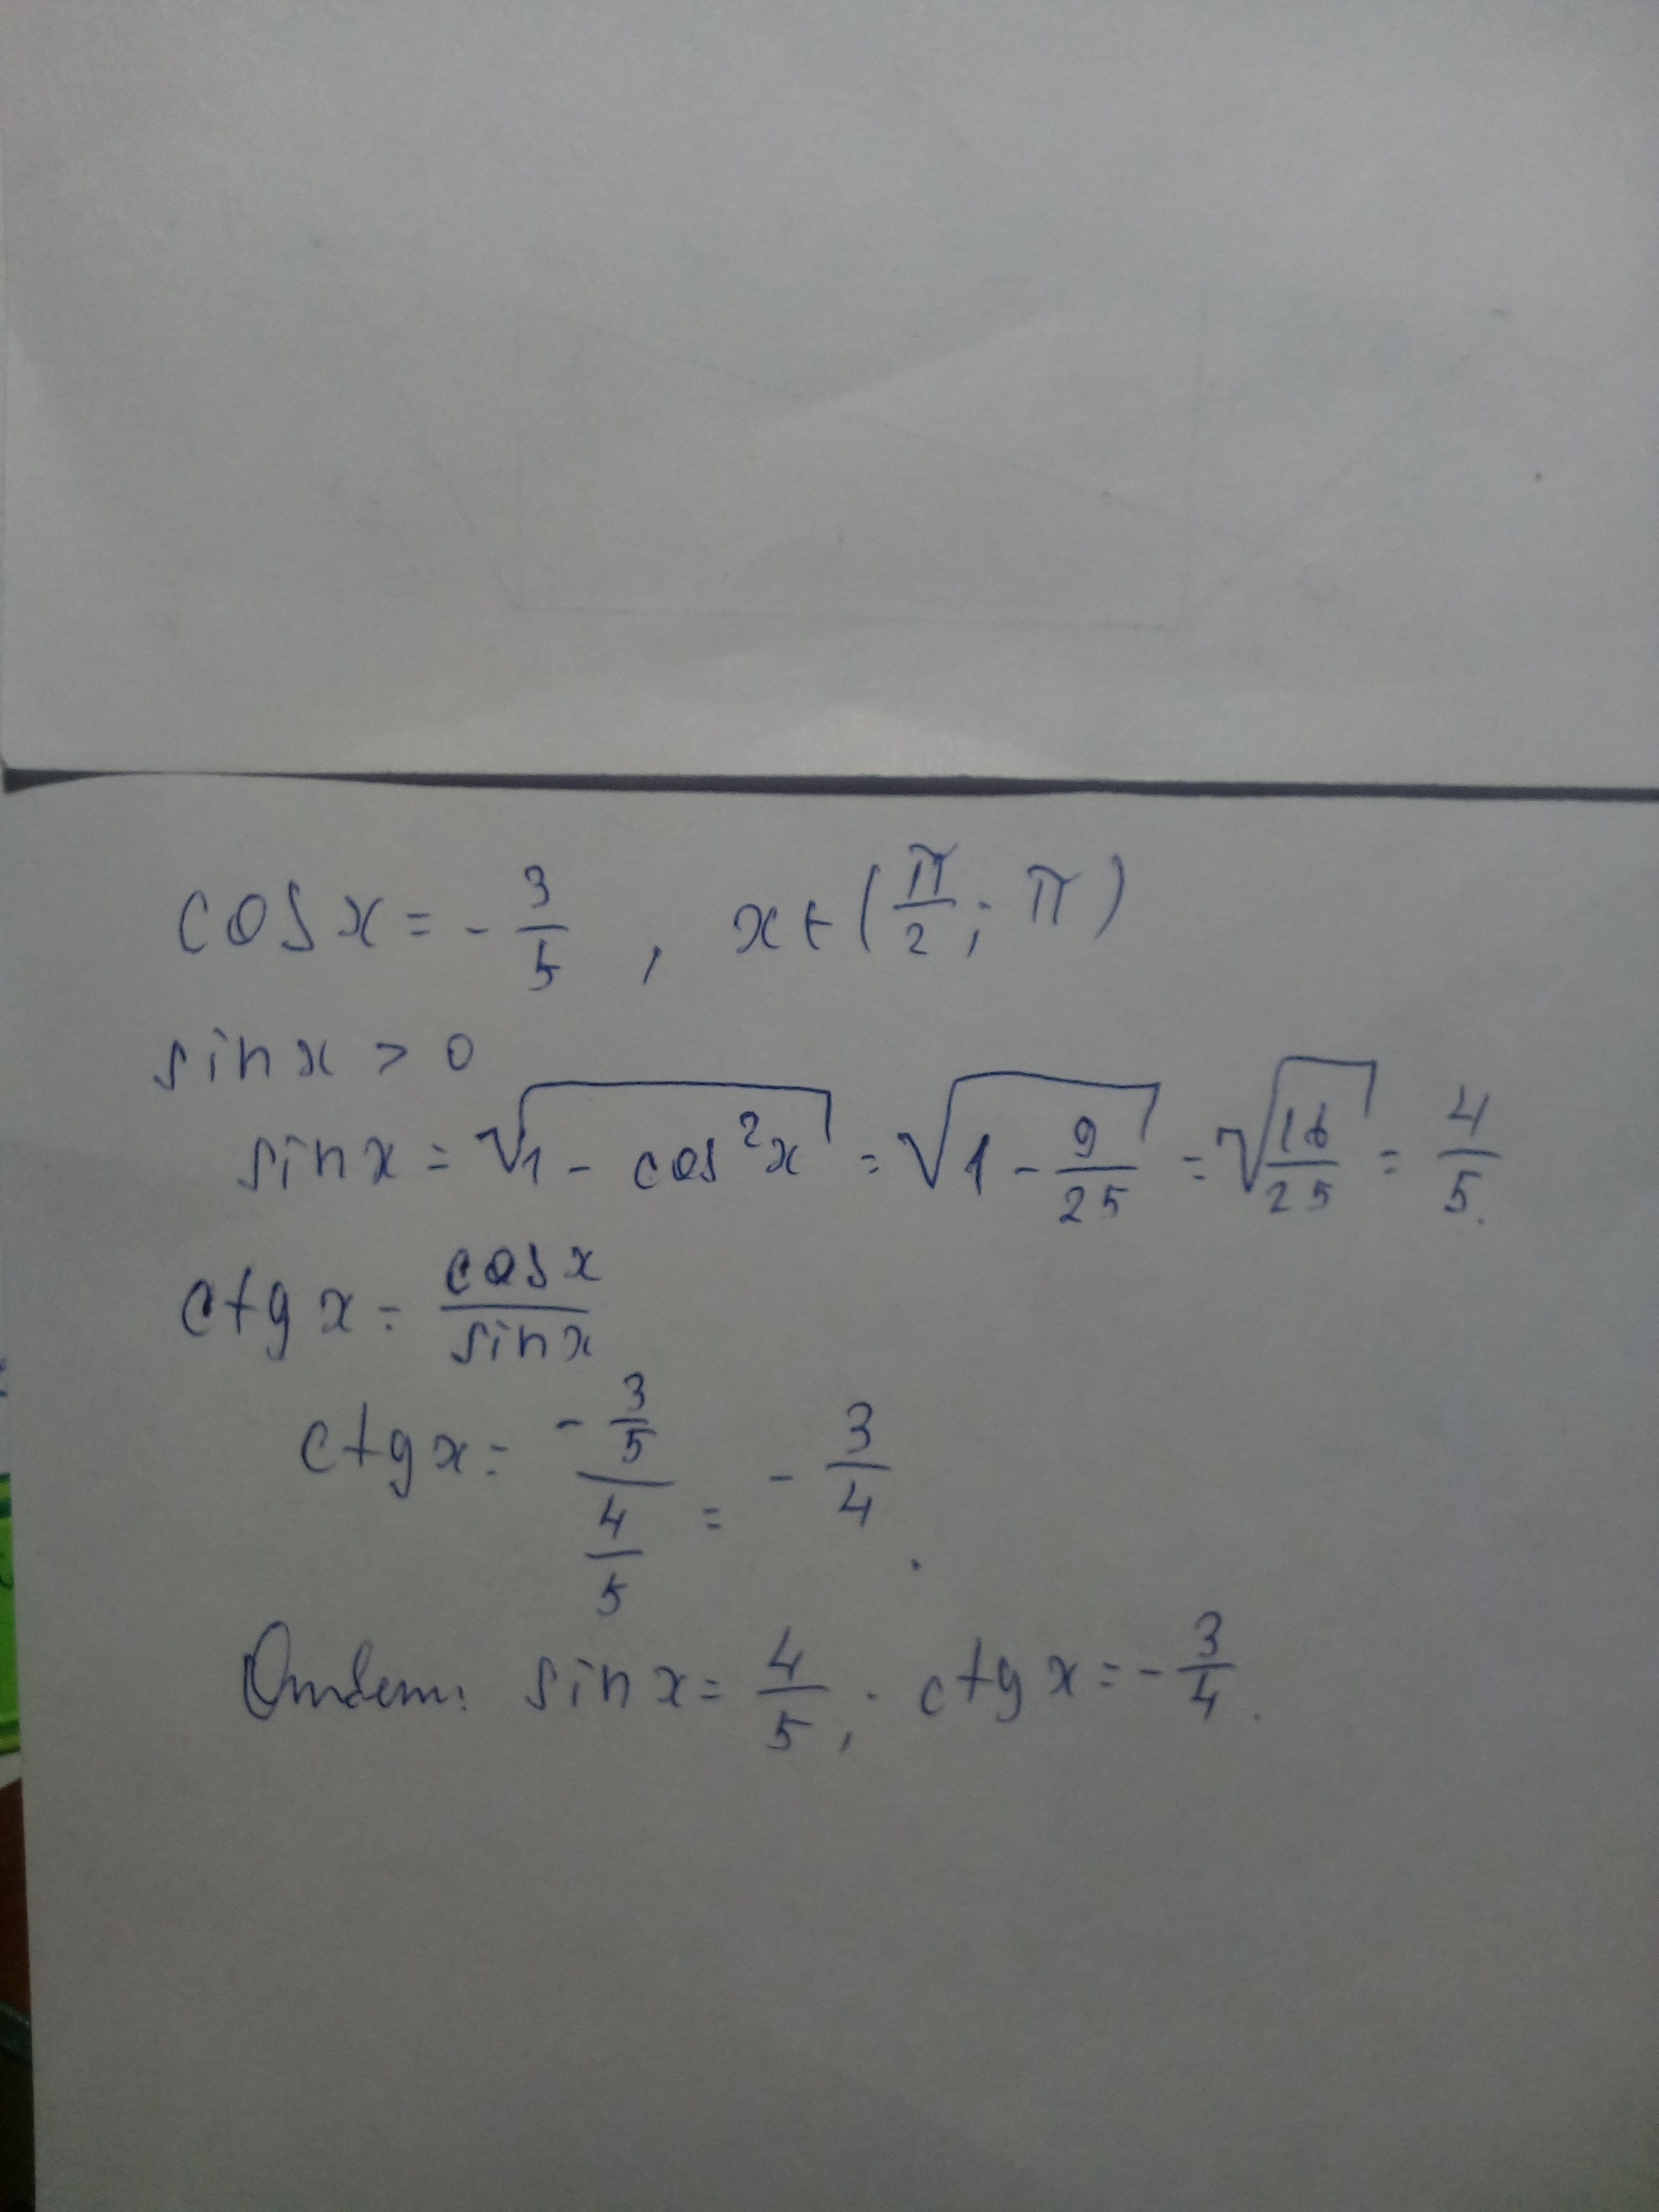 cos x = - 3/5 , x ∈ (π/2 ; π)
sin x > 0
sin x = √(1 - cos²x) = √(1 - 9/25) = √(16/25) = 4/5.
ctg x = cos x / sin x
ctg x = (- 3/5) / (4/5) = - 3/4 .
Ответ: sin x = 4/5 ; ctg x = - 3/4 .